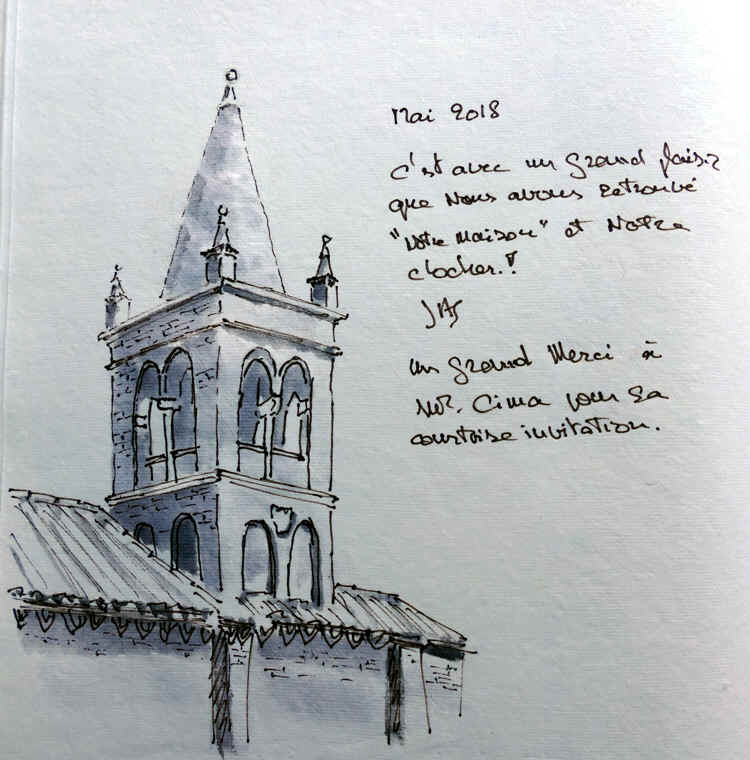 Mai 2018
C'est avec un grand plaisir
que nous avons retrouvé
"notre maison" et notre
clocher.!
un grand Merci à
Mr. Cima pour sa
courtoise invitation.